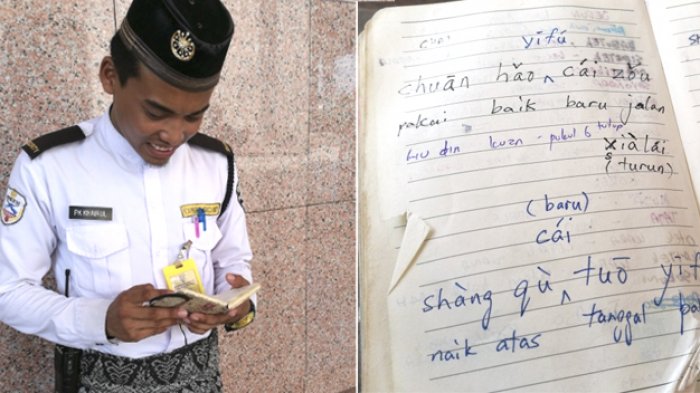 PK KHAIRUL
yīfú
chuān hǎo ^ cái zǒu
pakai baik baru jalan
liu diǎn kuan - pukul 6 tutup
xià lái
(turun)
(baru)
cái
shàng qù ^ tuō yīf
naik atas tanggal